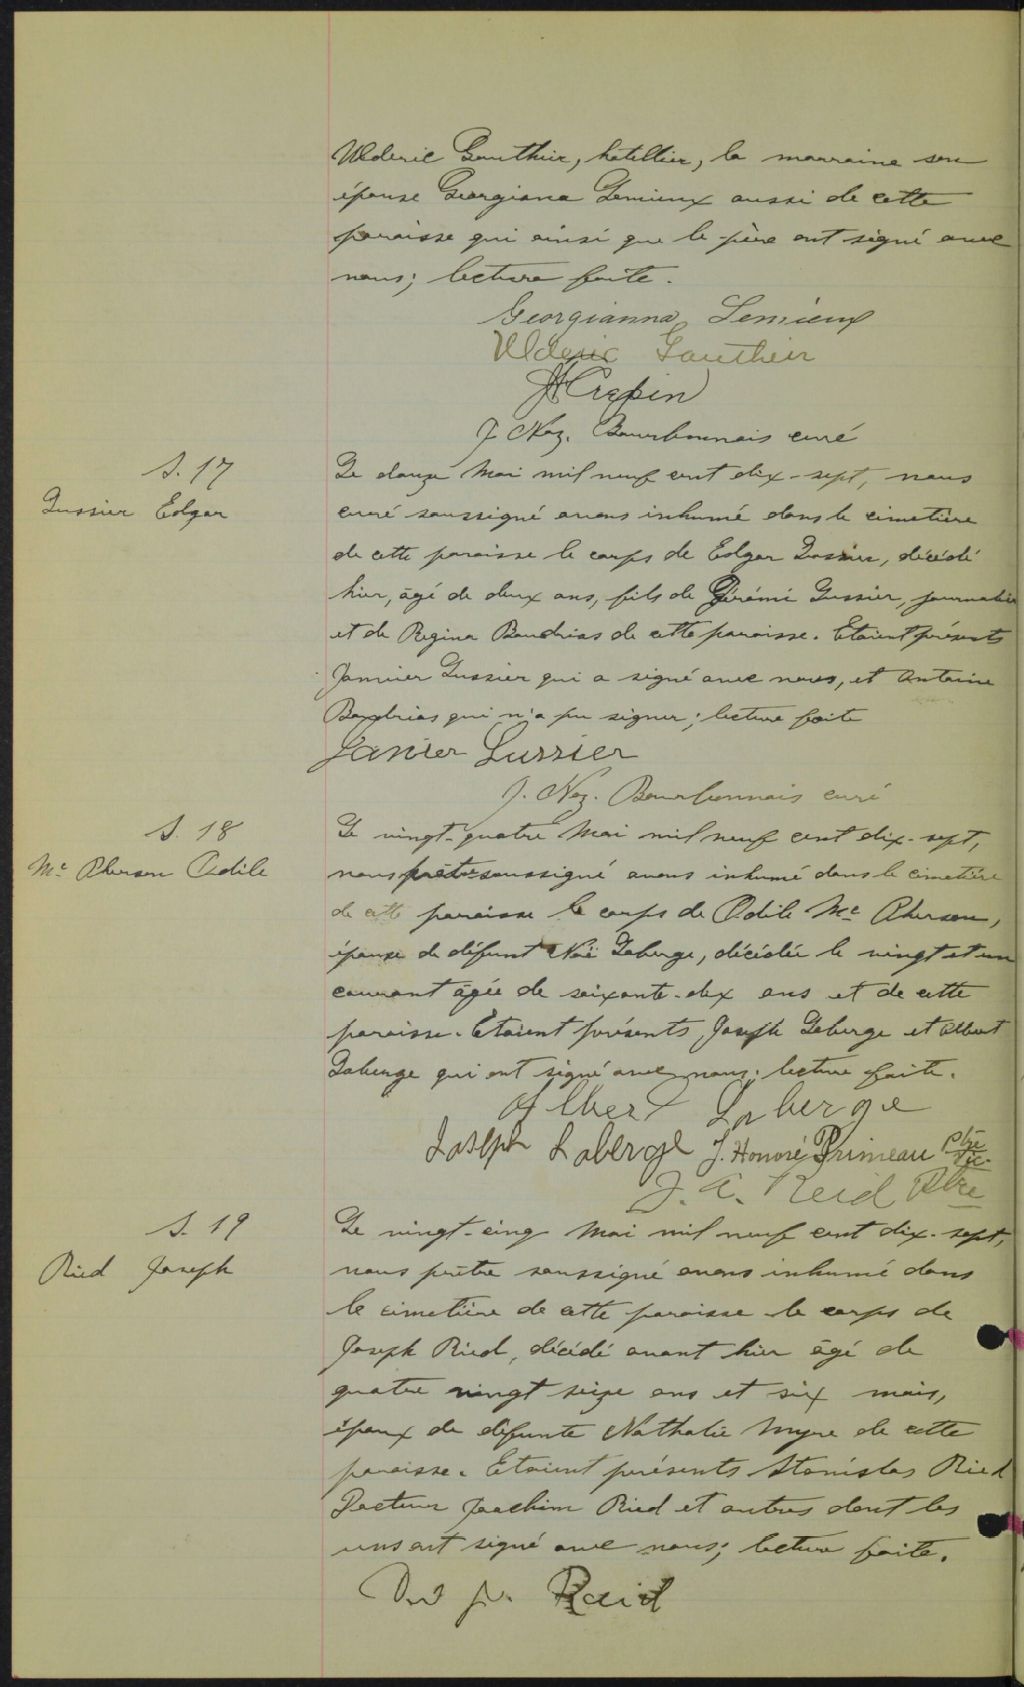 Ulderic Gauthier, hôtellier, la marraine son
épouse Georgiana Lemieux aussi de cette
paroisse qui ainsi que le père ont signé avec
nous; lecture faite.
Georgianna Lemieux
Ulderic Gauthier
Crepin
J. Naz. Bourbonnais curé
S. 17
Lussier Edgar
Le douze Mai mil neuf cent dix-sept, nous
curé soussigné avons inhumé dans le cimetière
de cette paroisse le corps de Edgar Lussier, décédé
hier, âgé de deux ans, fils de Jérémi Lussier, journalier
et de Regina Baudrias de cette paroisse. Etaient présents
Janvier Lussier qui a signé avec nous, et Antoine
Baudrias qui n'a pu signer; lecture faite
Janvier Lussier
J. Naz. Bourbonnais curé
S. 18
Mc Pherson Odile
Le vingt-quatre Mai mil neuf cent dix-sept,
nous prêtre soussigné avons inhumé dans le cimetière
de cette paroisse le corps de Odile Mc Pherson,
épouse de défunt Noë Laberge, décédée le vingt et un
courant âgée de soixante-dix ans et de cette
paroisse. Etaient présents Joseph Laberge et Albert
Laberge qui ont signé avec nous; lecture faite.
Albert Laberge
Joseph Laberge J. Honoré Primeau ptre vic.
J. A. Reid Ptre
S. 19
Ried Joseph
Le vingt-cinq Mai mil neuf cent dix-sept,
nous prêtre soussigné avons inhumé dans
le cimetière de cette paroisse le corps de
Joseph Ried, décédé avant hier âgé de
quatre vingt seize ans et six mois,
époux de défunte Nathalie Myre de cette
paroisse. Etaient présents Stanislas Ried
Docteur Joachim Ried et autres dont les
uns ont signé avec nous; lecture faite.
Reid